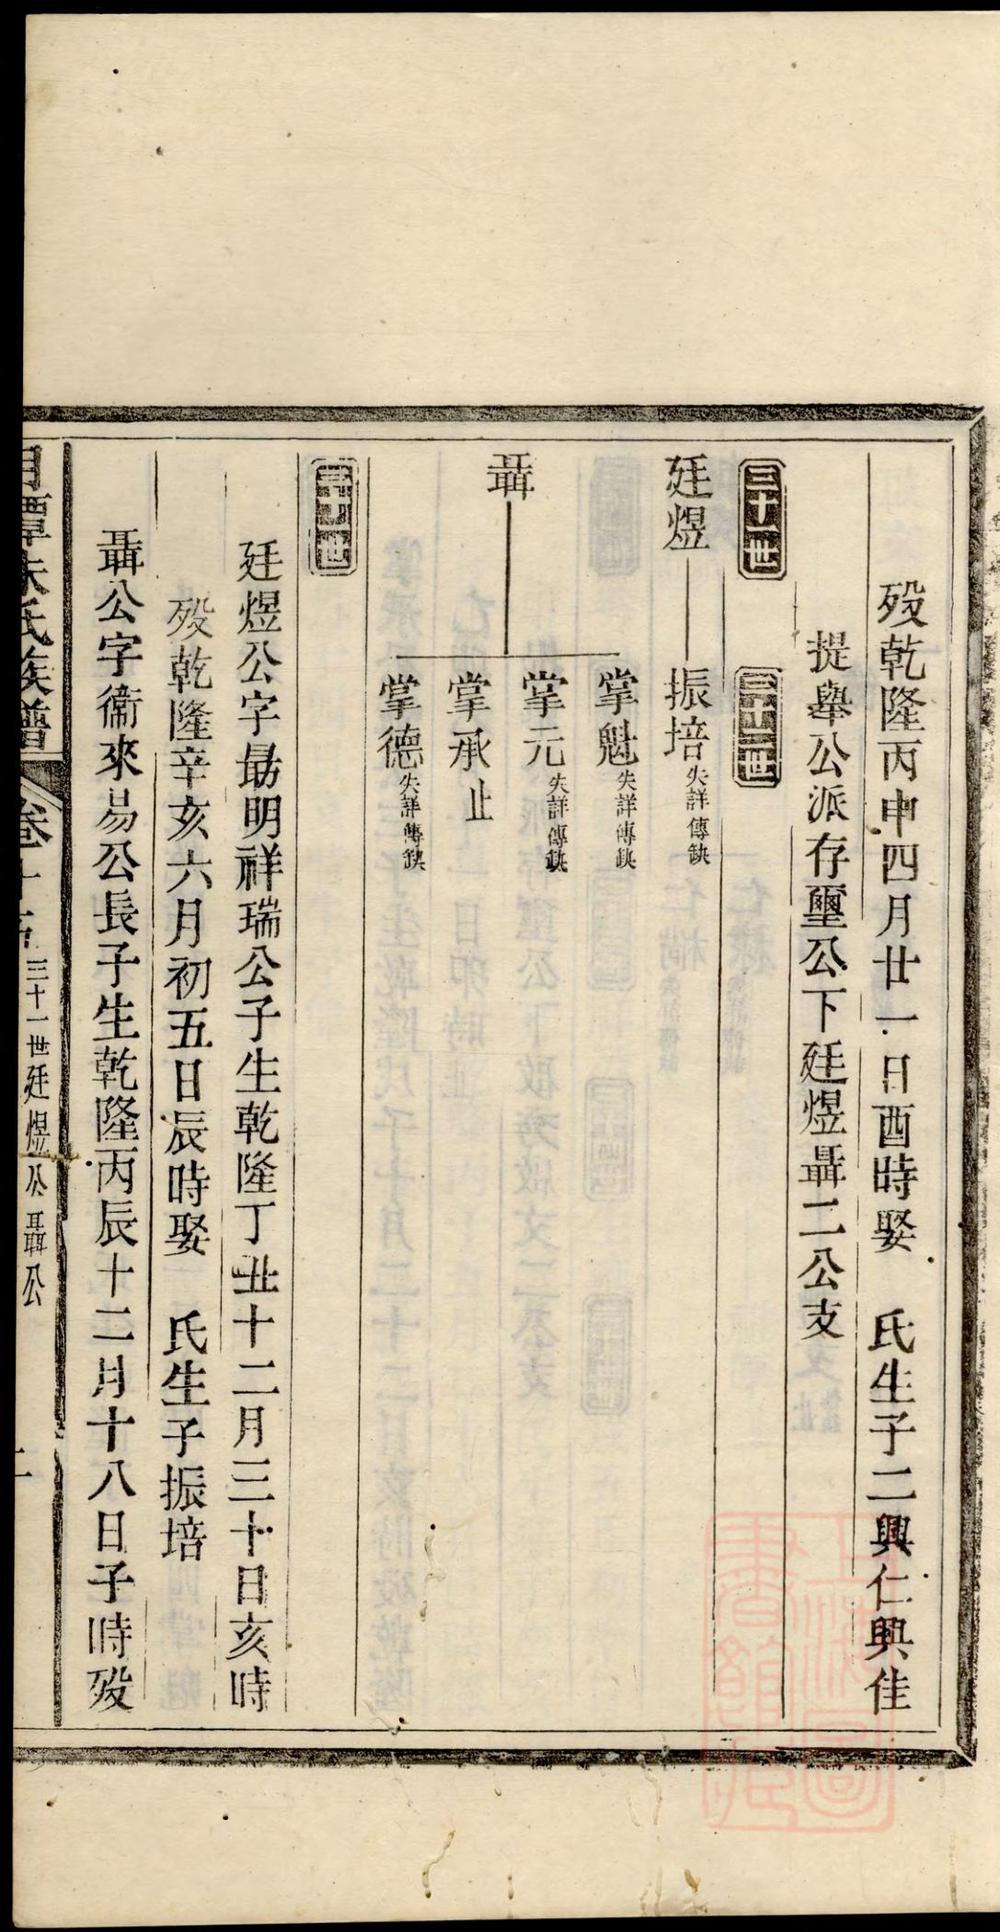 歿乾隆丙申四月廿一日酉時娶　氏生子二興仁興佳
提舉公派存璽公下廷煜聶二公支
三十一世
三十二世
廷煜
振培失詳傳缺
聶
掌魁失詳傳缺
掌元失詳傳缺
掌承止
掌德失詳傳缺
三十一世
廷煜公字勗明祥瑞公子生乾隆丁丑十二月三十日亥時
歿乾隆辛亥六月初五日辰時娶　氏生子振培
聶公字衛來易公長子生乾隆丙辰十二月十八日子時歿
月潭朱氏族譜
卷十
三十一世廷煜公聶公
上海圖書館藏